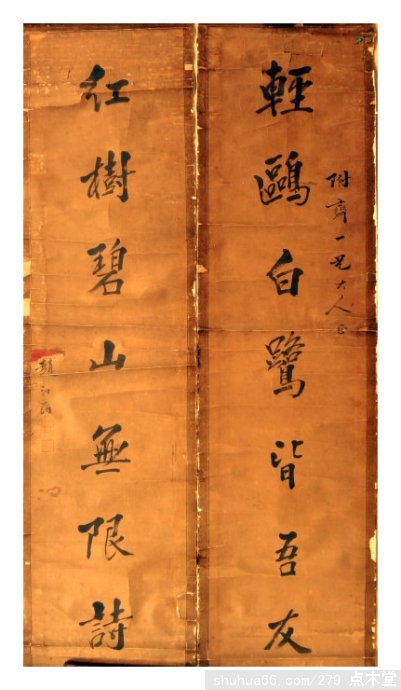 輕鷗白鷺皆吾友
一兄大人
紅樹碧山無限詩
趙
shuhua66.com/279 点木堂